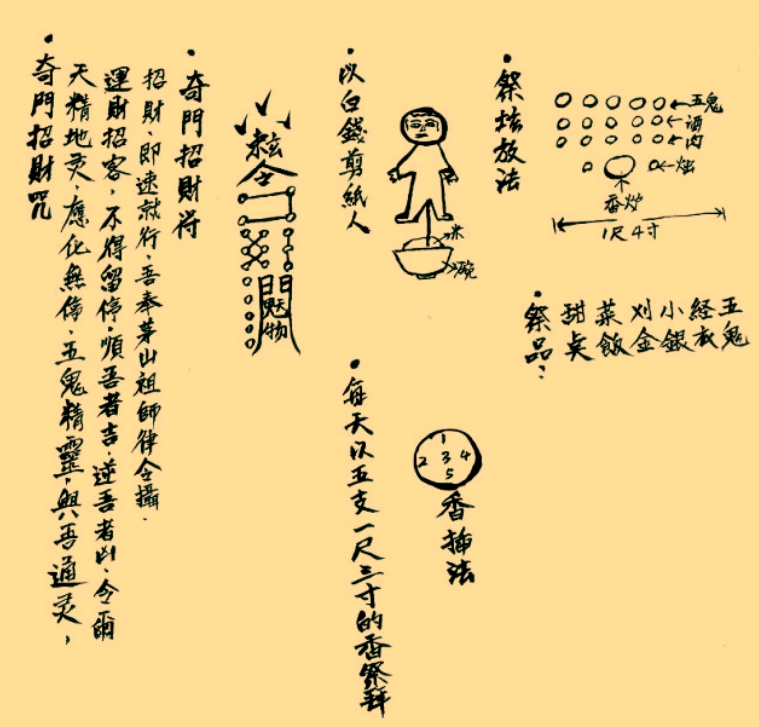 ・奇門招財咒
天精地灵,應化無停,五鬼精靈,與吾通灵,
運財招客,不得留停,順吾者吉,逆吾者凶,令爾
招財,即速就行,吾奉茅山祖師律令攝.
・奇門招財符
令
・以白錢剪紙人
米
碗
・每天以五支一尺三寸的香祭拜
1
2 3 4
5
香插法
・祭坛放法
五鬼
酒
肉
烛
香炉
1尺4寸
・祭品:
甜奌
菜飯
刈金
小銀
経衣
五鬼